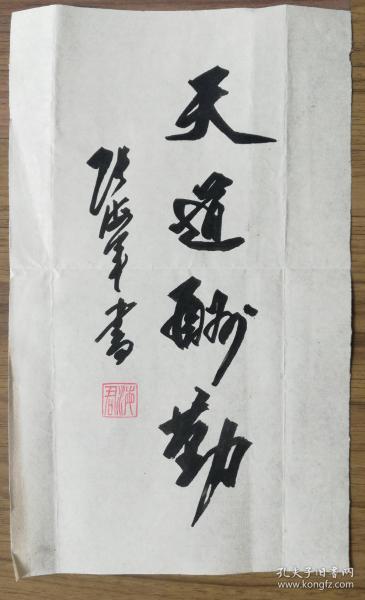 天道酬勤
张海军书
海君
孔夫子旧书网
www.kongfz.com